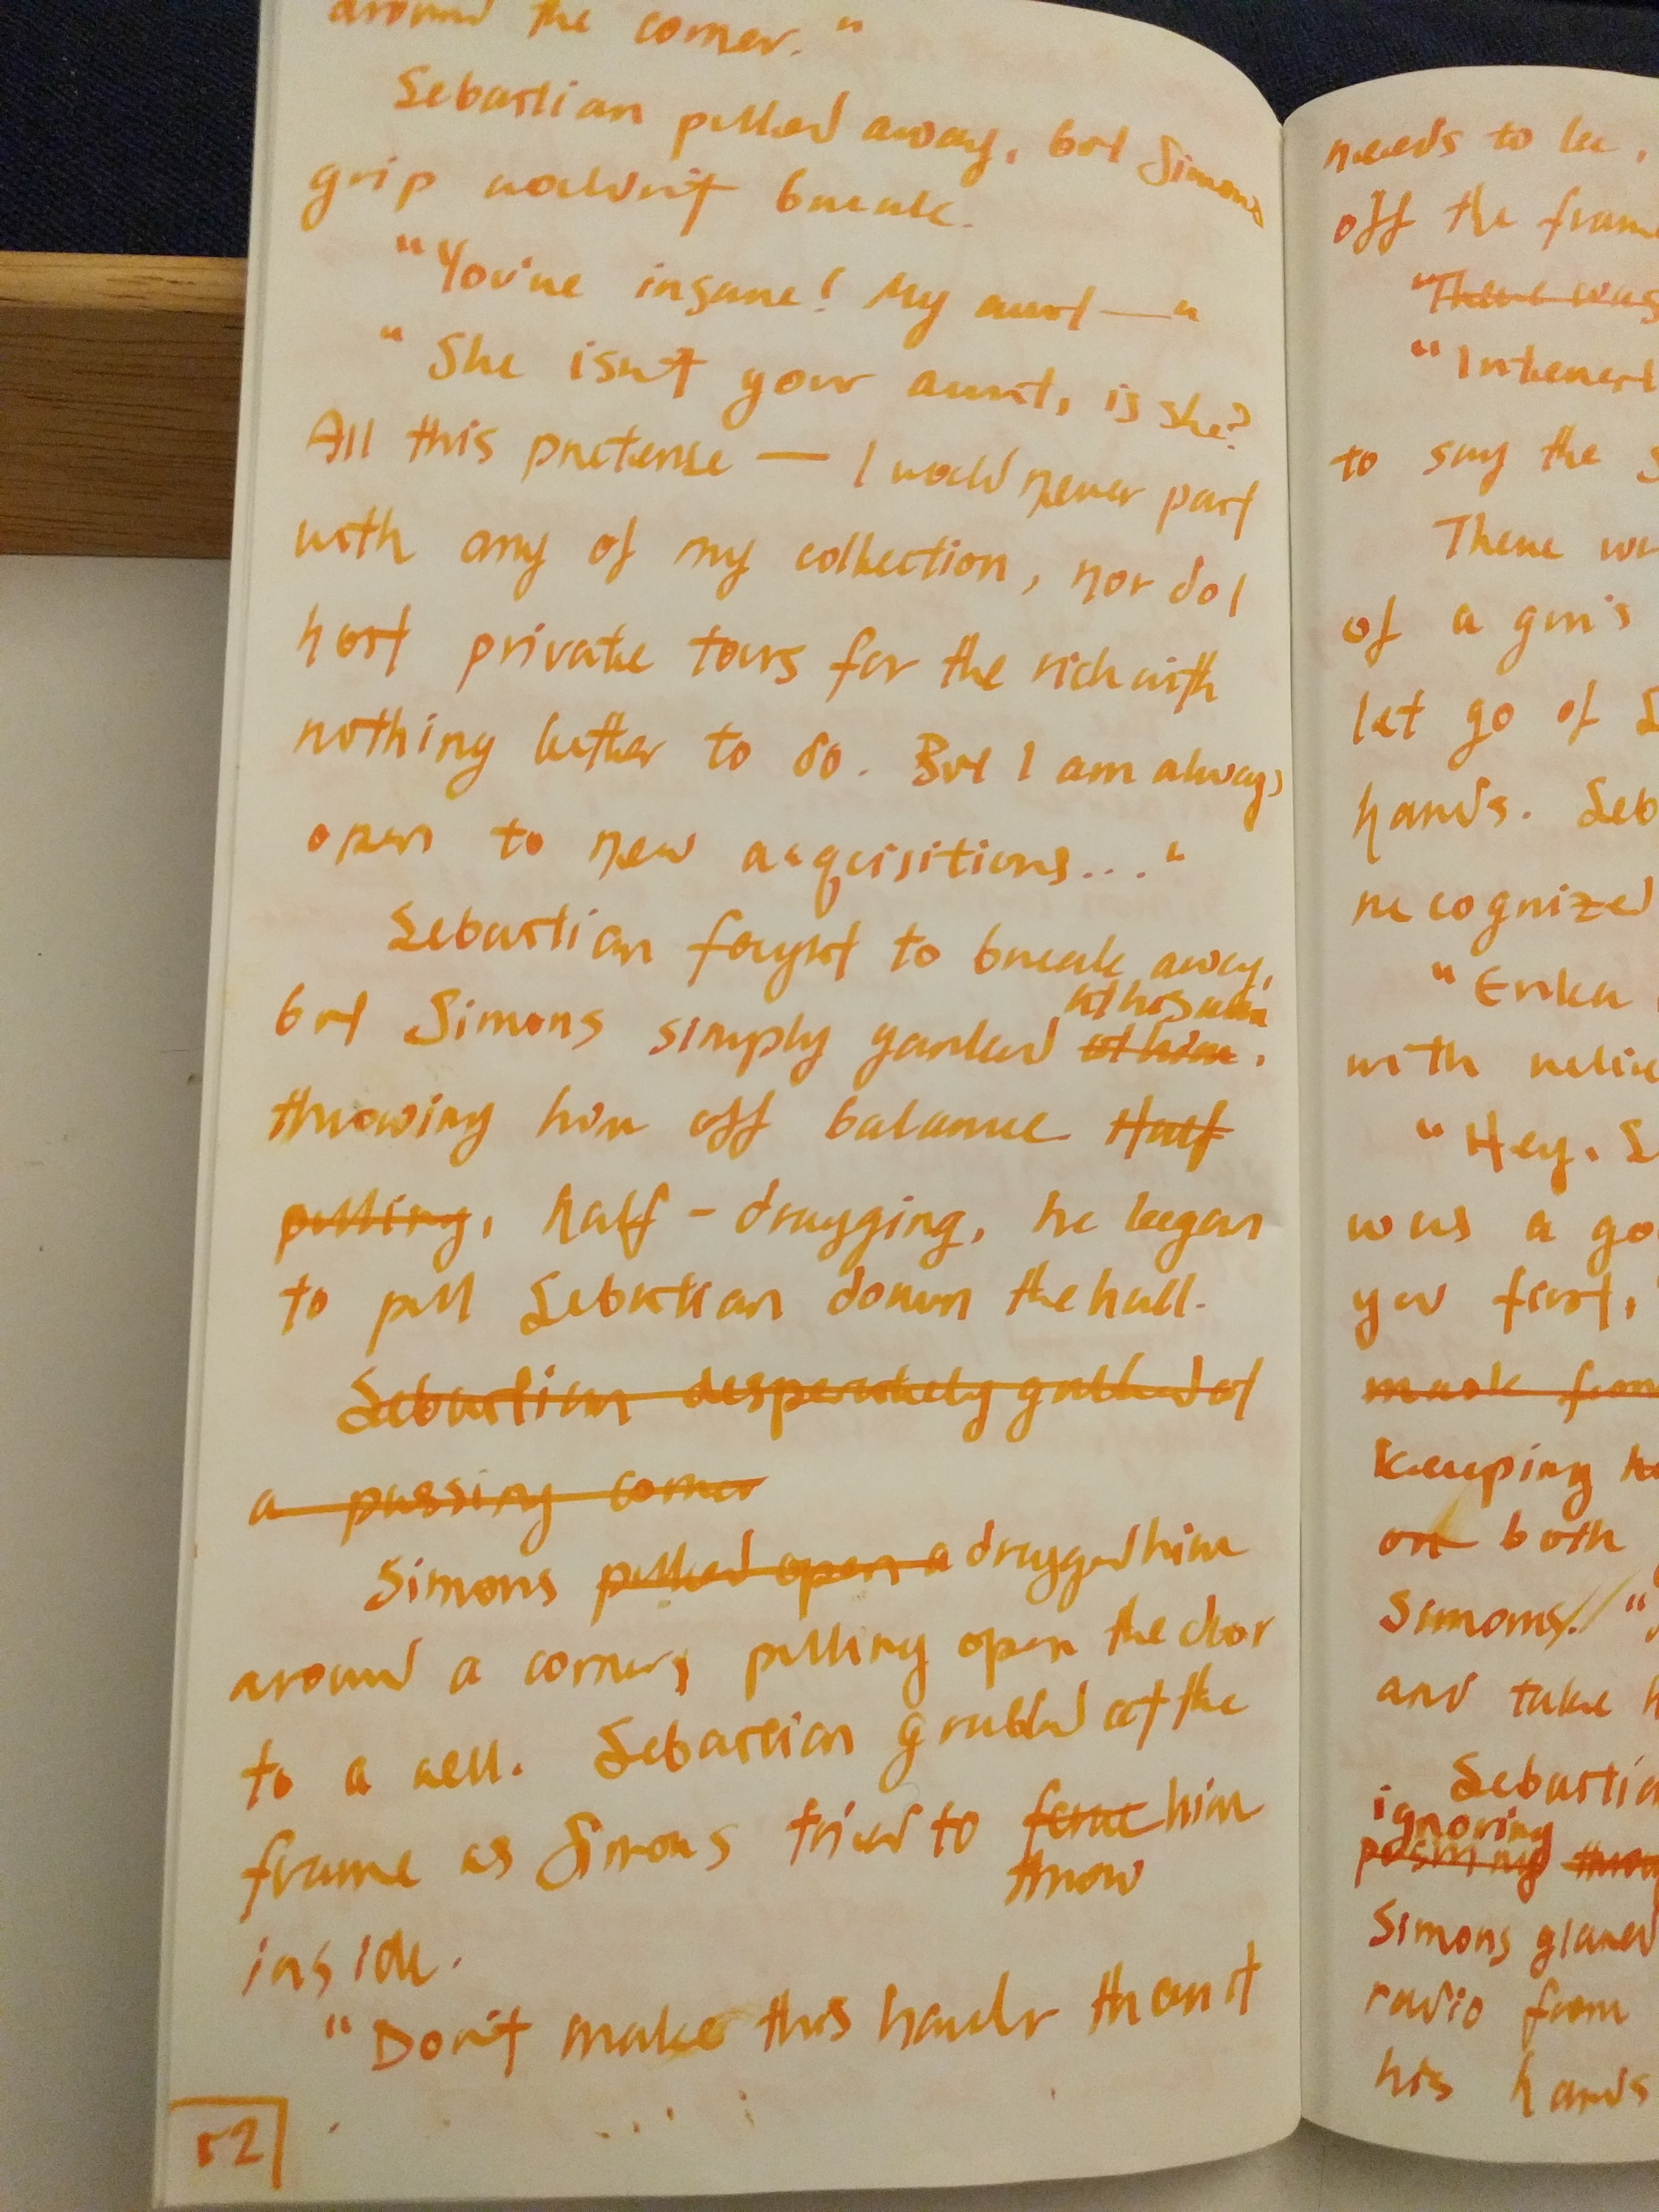 around the corner."
Sebastian pulled away, but Simons
grip wouldn't break.
"You're insane! My aunt —"
"She isn't your aunt, is she?
All this pretense — I would never part
with any of my collection, nor do I
host private tours for the rich with
nothing better to do. But I am always
open to new acquisitions..."
Sebastian fought to break away,
but Simons simply yanked at his arm
at him,
throwing him off balance Half
pulling, half-dragging, he began
to pull Sebastian down the hall.
Sebastian desperately grabbed at
a passing corner
Simons pulled open a dragged him
around a corner, pulling open the door
to a cell. Sebastian grabbed at the
frame as Simons tried to force him
throw
inside.
"Don't make this harder than it
52
needs to be,
off the frame
"There was
"Intenerl
to say the s
There we
of a gun's
let go of S
hands. Seb
recognized
"Erika
with relie
"Hey, S
was a go
you first,
mask from
Keeping he
on both
Simons. "
and take h
Sebastia
ignoring
passing
Simons glared
radio from
his hands